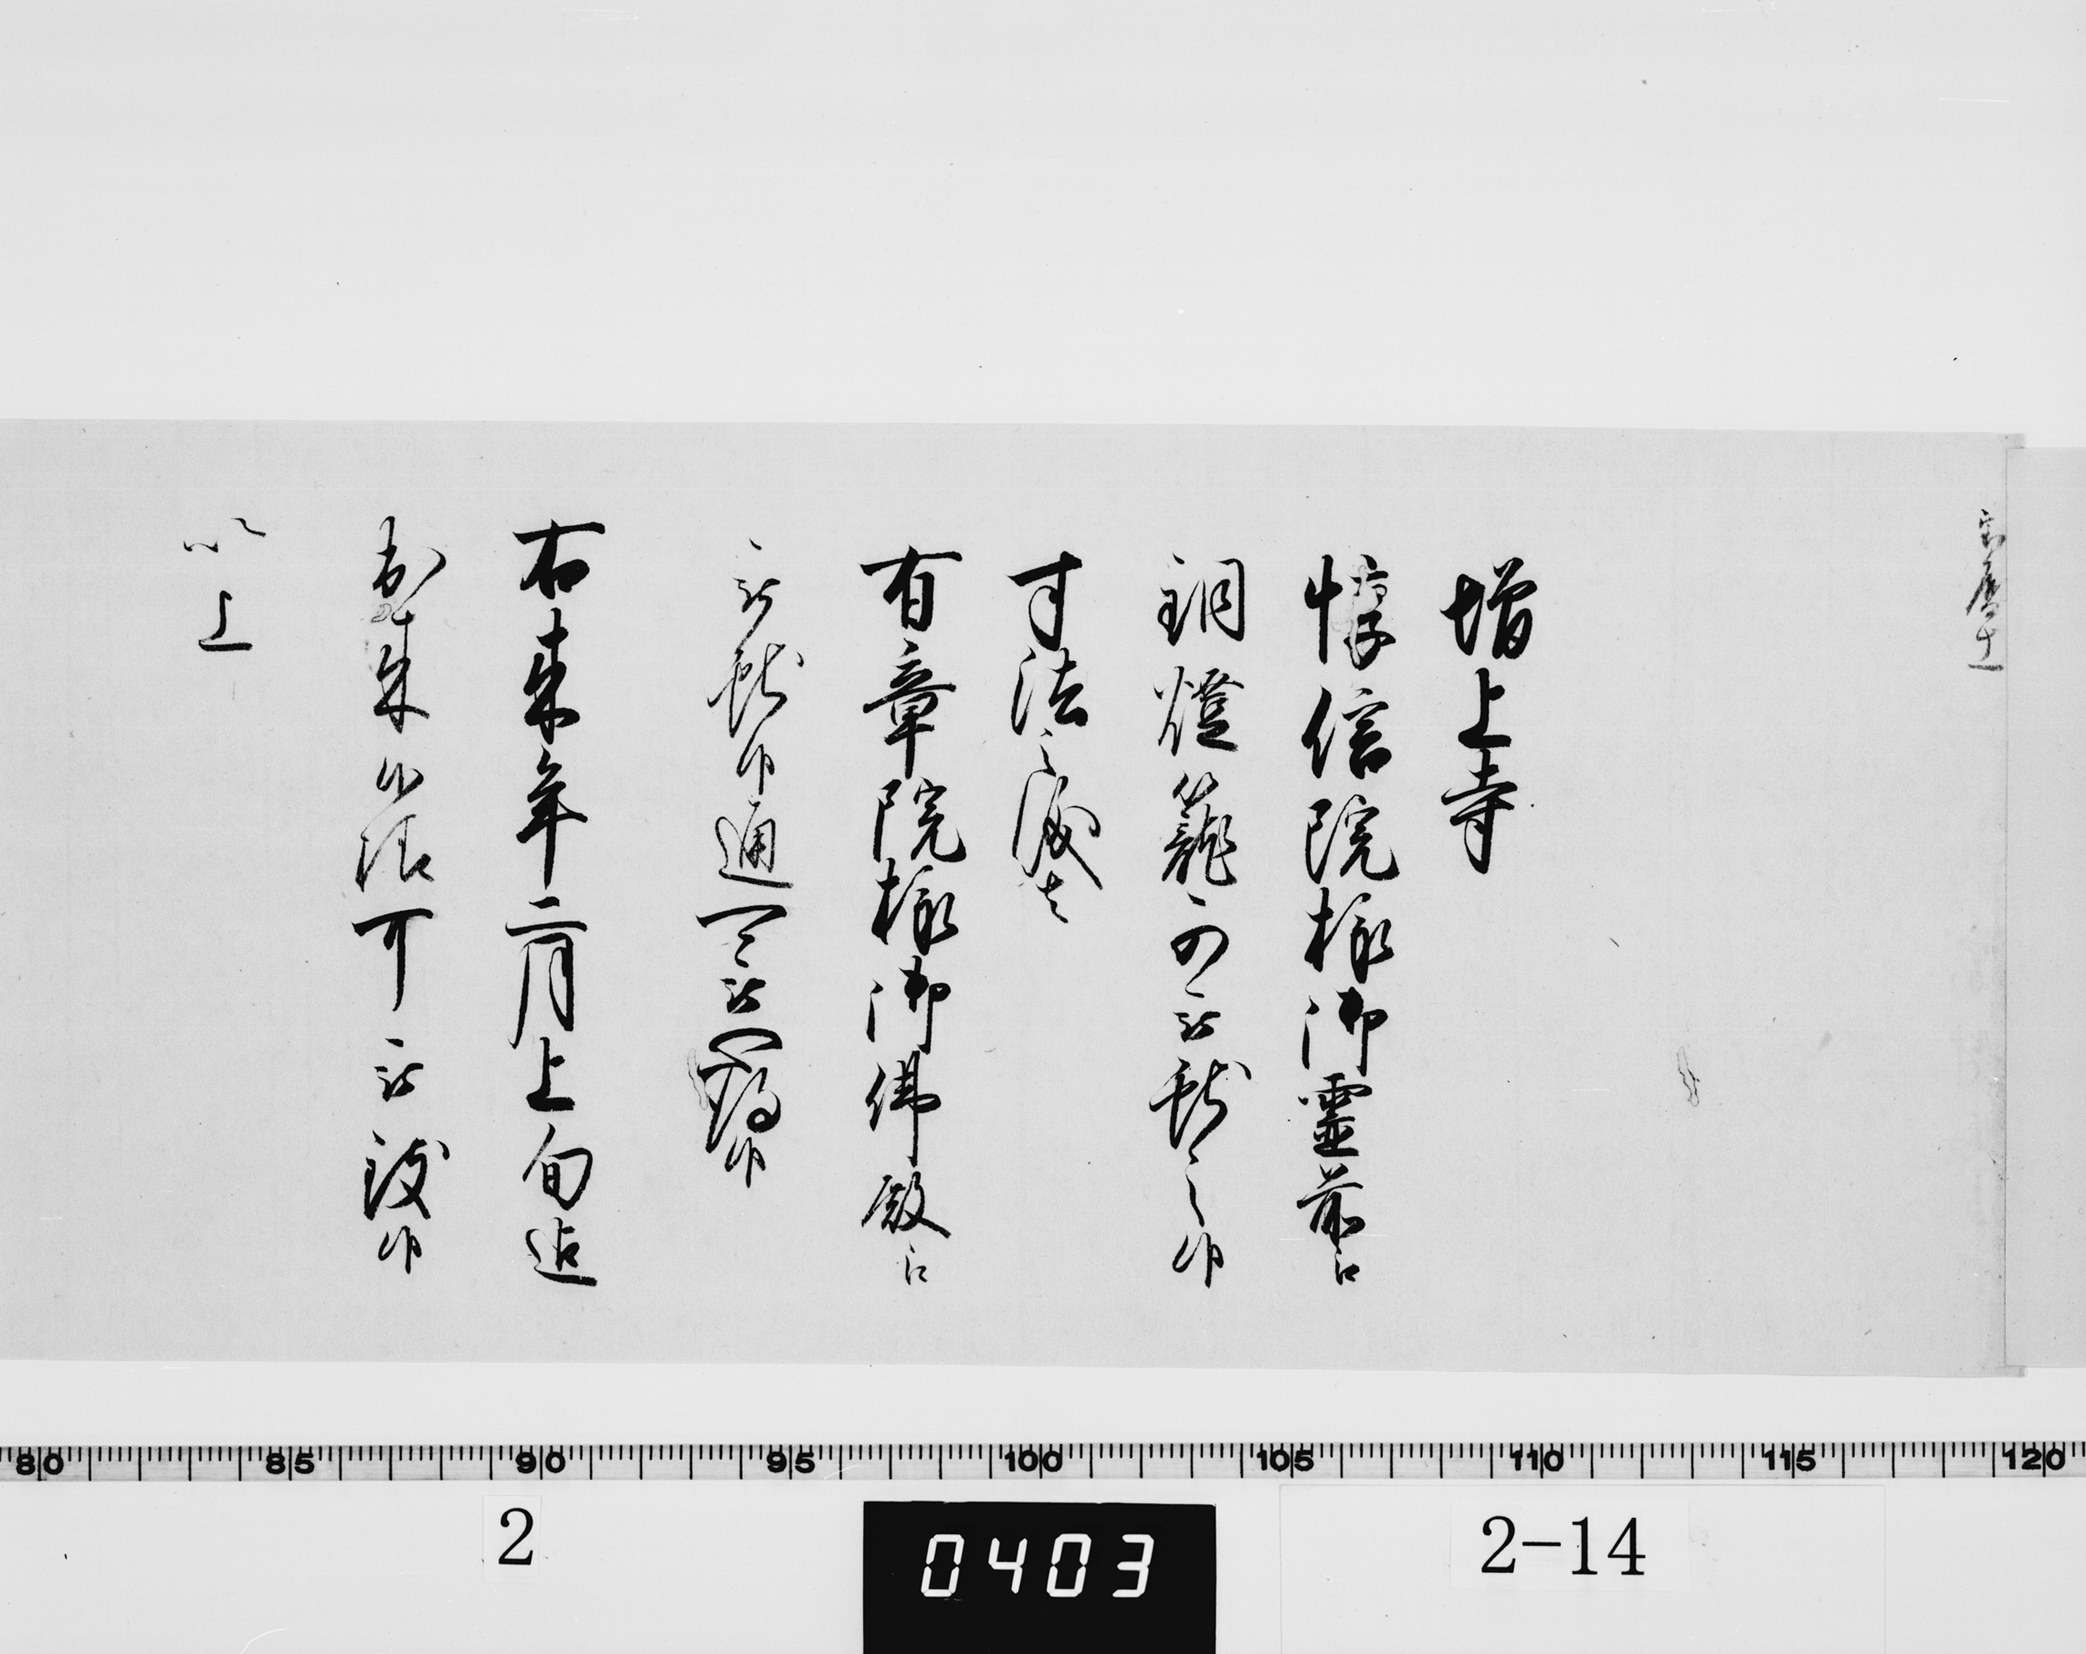 宝暦十一
増上寺
惇信院様御霊前江
銅燈籠可被献之候
寸法之儀者
有章院様御佛殿江
被献候通可被心得候
右来年二月上旬迄
出来候様可被致候
以上
80 85 90 95 100 105 110 115 120
2
0403
2-14